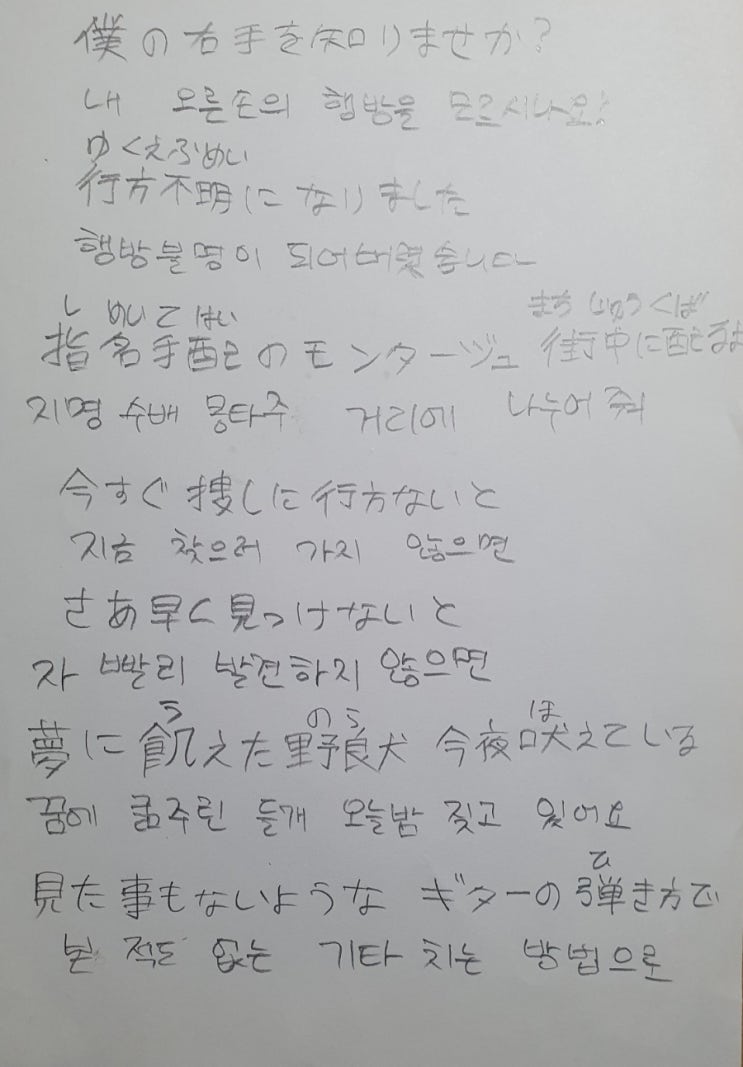 僕の右手を知りませか?
내 오른손의 행방을 모르시나요?
ゆくえふめい
行方不明になりました
행방불명이 되어버렸습니다
し めいてはい まち じゅう くば
指名手配のモンタージュ 街中に配るよ
지명 수배 몽타주 거리에 나누어 줘
今すぐ捜しに行方ないと
지금 찾으러 가지 않으면
さあ早く見つけないと
자 빨리 발견하지 않으면
う のら ほ
夢に飢えた野良犬 今夜吠えている
꿈에 굶주린 들개 오늘밤 짖고 있어요
ひ
見た事もないような ギターの弾き方で
본 적도 없는 기타 치는 방법으로